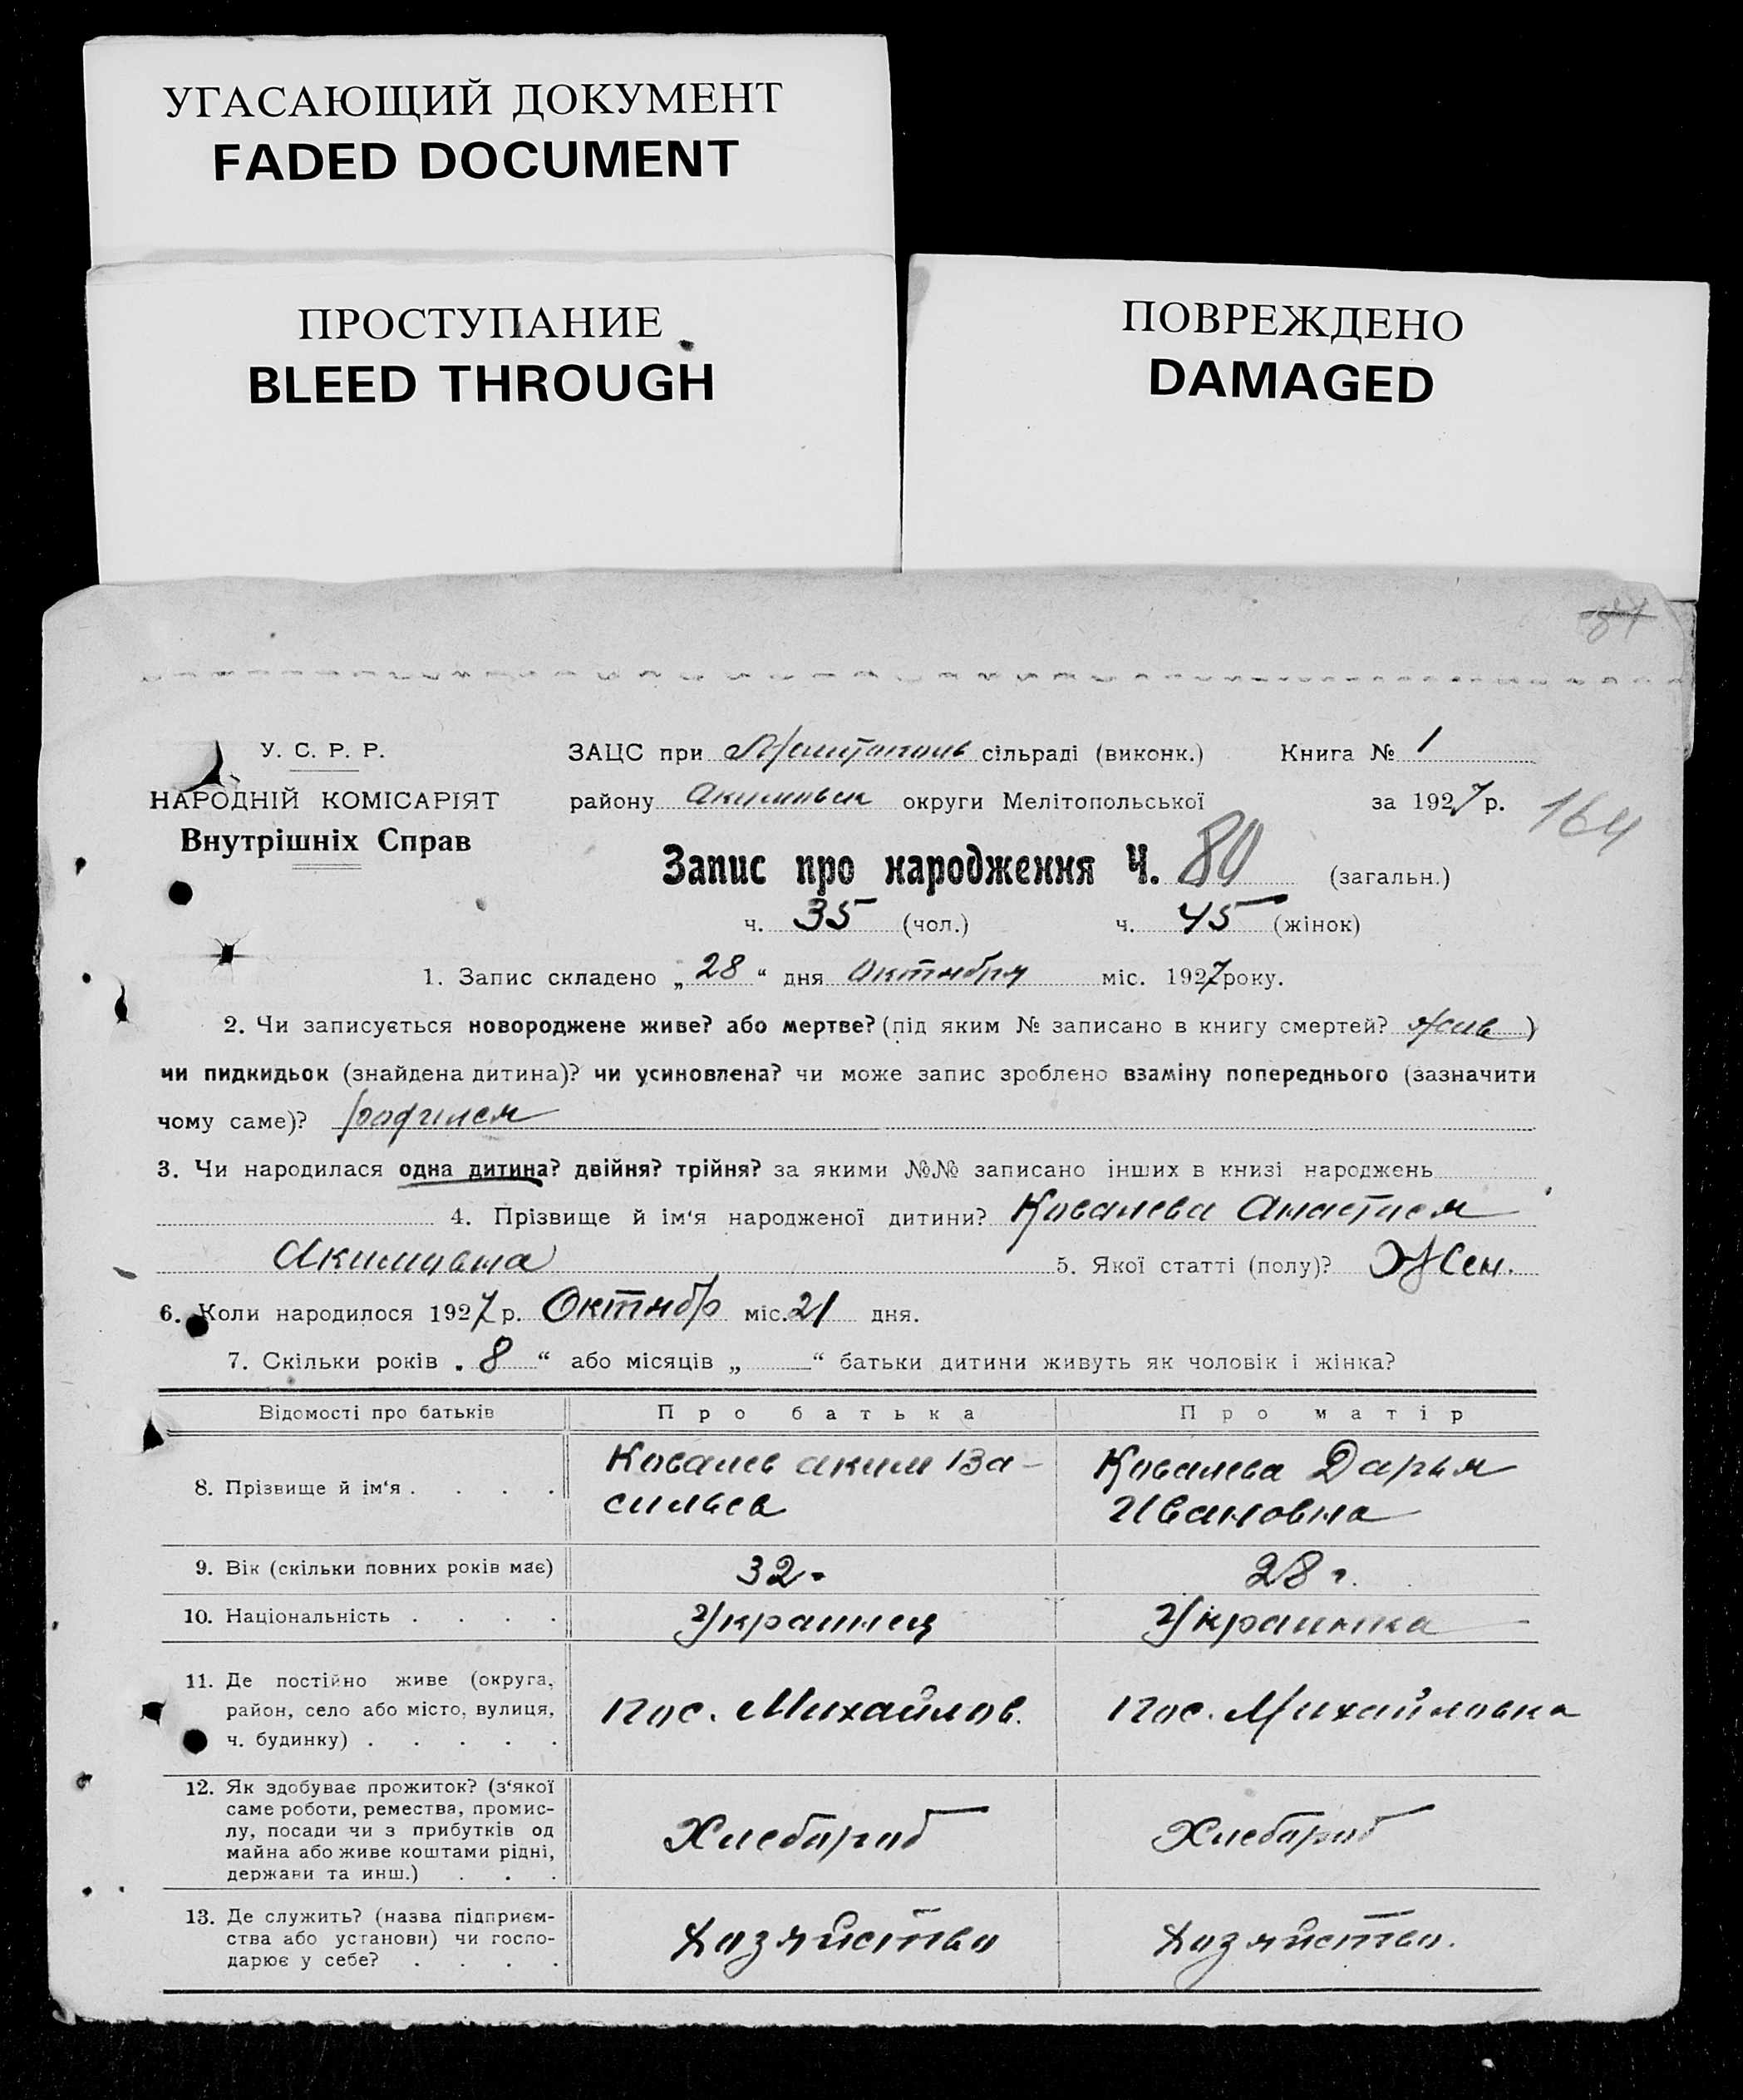 УГАСАЮЩИЙ ДОКУМЕНТ
FADED DOCUMENT
ПРОСТУПАНИЕ
BLEED THROUGH
ПОВРЕЖДЕНО
DAMAGED
81
У. С. Р. Р.
НАРОДНІЙ КОМІСАРІЯТ
Внутрішніх Справ
ЗАЦС при сільраді (виконк.) Книга № 1
району Акимовск округи Мелітопольської за 1927 р. 164
Запис про народження Ч. 80 (загальн.)
ч. 35 (чол.) ч. 45 (жінок)
1. Запис складено „28“ дня Октября міс. 1927 року.
2. Чи записується новороджене живе? або мертве? (під яким № записано в книгу смертей? жив)
чи пидкидьок (знайдена дитина)? чи усиновлена? чи може запис зроблено взаміну попереднього (зазначити
чому саме)? родился
3. Чи народилася одна дитина? двійня? трійня? за якими №№ записано інших в книзі народжень
4. Прізвище й ім‘я народженої дитини? Ковалева Анастасия
Акимовна 5. Якої статті (полу)? Жен.
6. Коли народилося 1927 р. Октябр міс. 21 дня.
7. Скільки років „8“ або місяців „ “ батьки дитини живуть як чоловік і жінка?
Відомості про батьків Про батька Про матір
8. Прізвище й ім‘я . . . . Ковалев аким Ва-
сильев
Ковалева Дарья
Ивановна
9. Вік (скільки повних років має) 32 28 г.
10. Національність . . . . Украинец Украинка
11. Де постійно живе (округа,
район, село або місто, вулиця,
ч. будинку) . . . . .
пос. Михайлов. пос. Михайловка
12. Як здобуває прожиток? (з‘якої
саме роботи, ремества, промис-
лу, посади чи з прибутків од
майна або живе коштами рідні,
держави та инш.) . . .
Хлебороб Хлебороб
13. Де служить? (назва підприєм-
ства або установи) чи госпо-
дарює у себе? . . . .
Хозяйство Хозяйство.